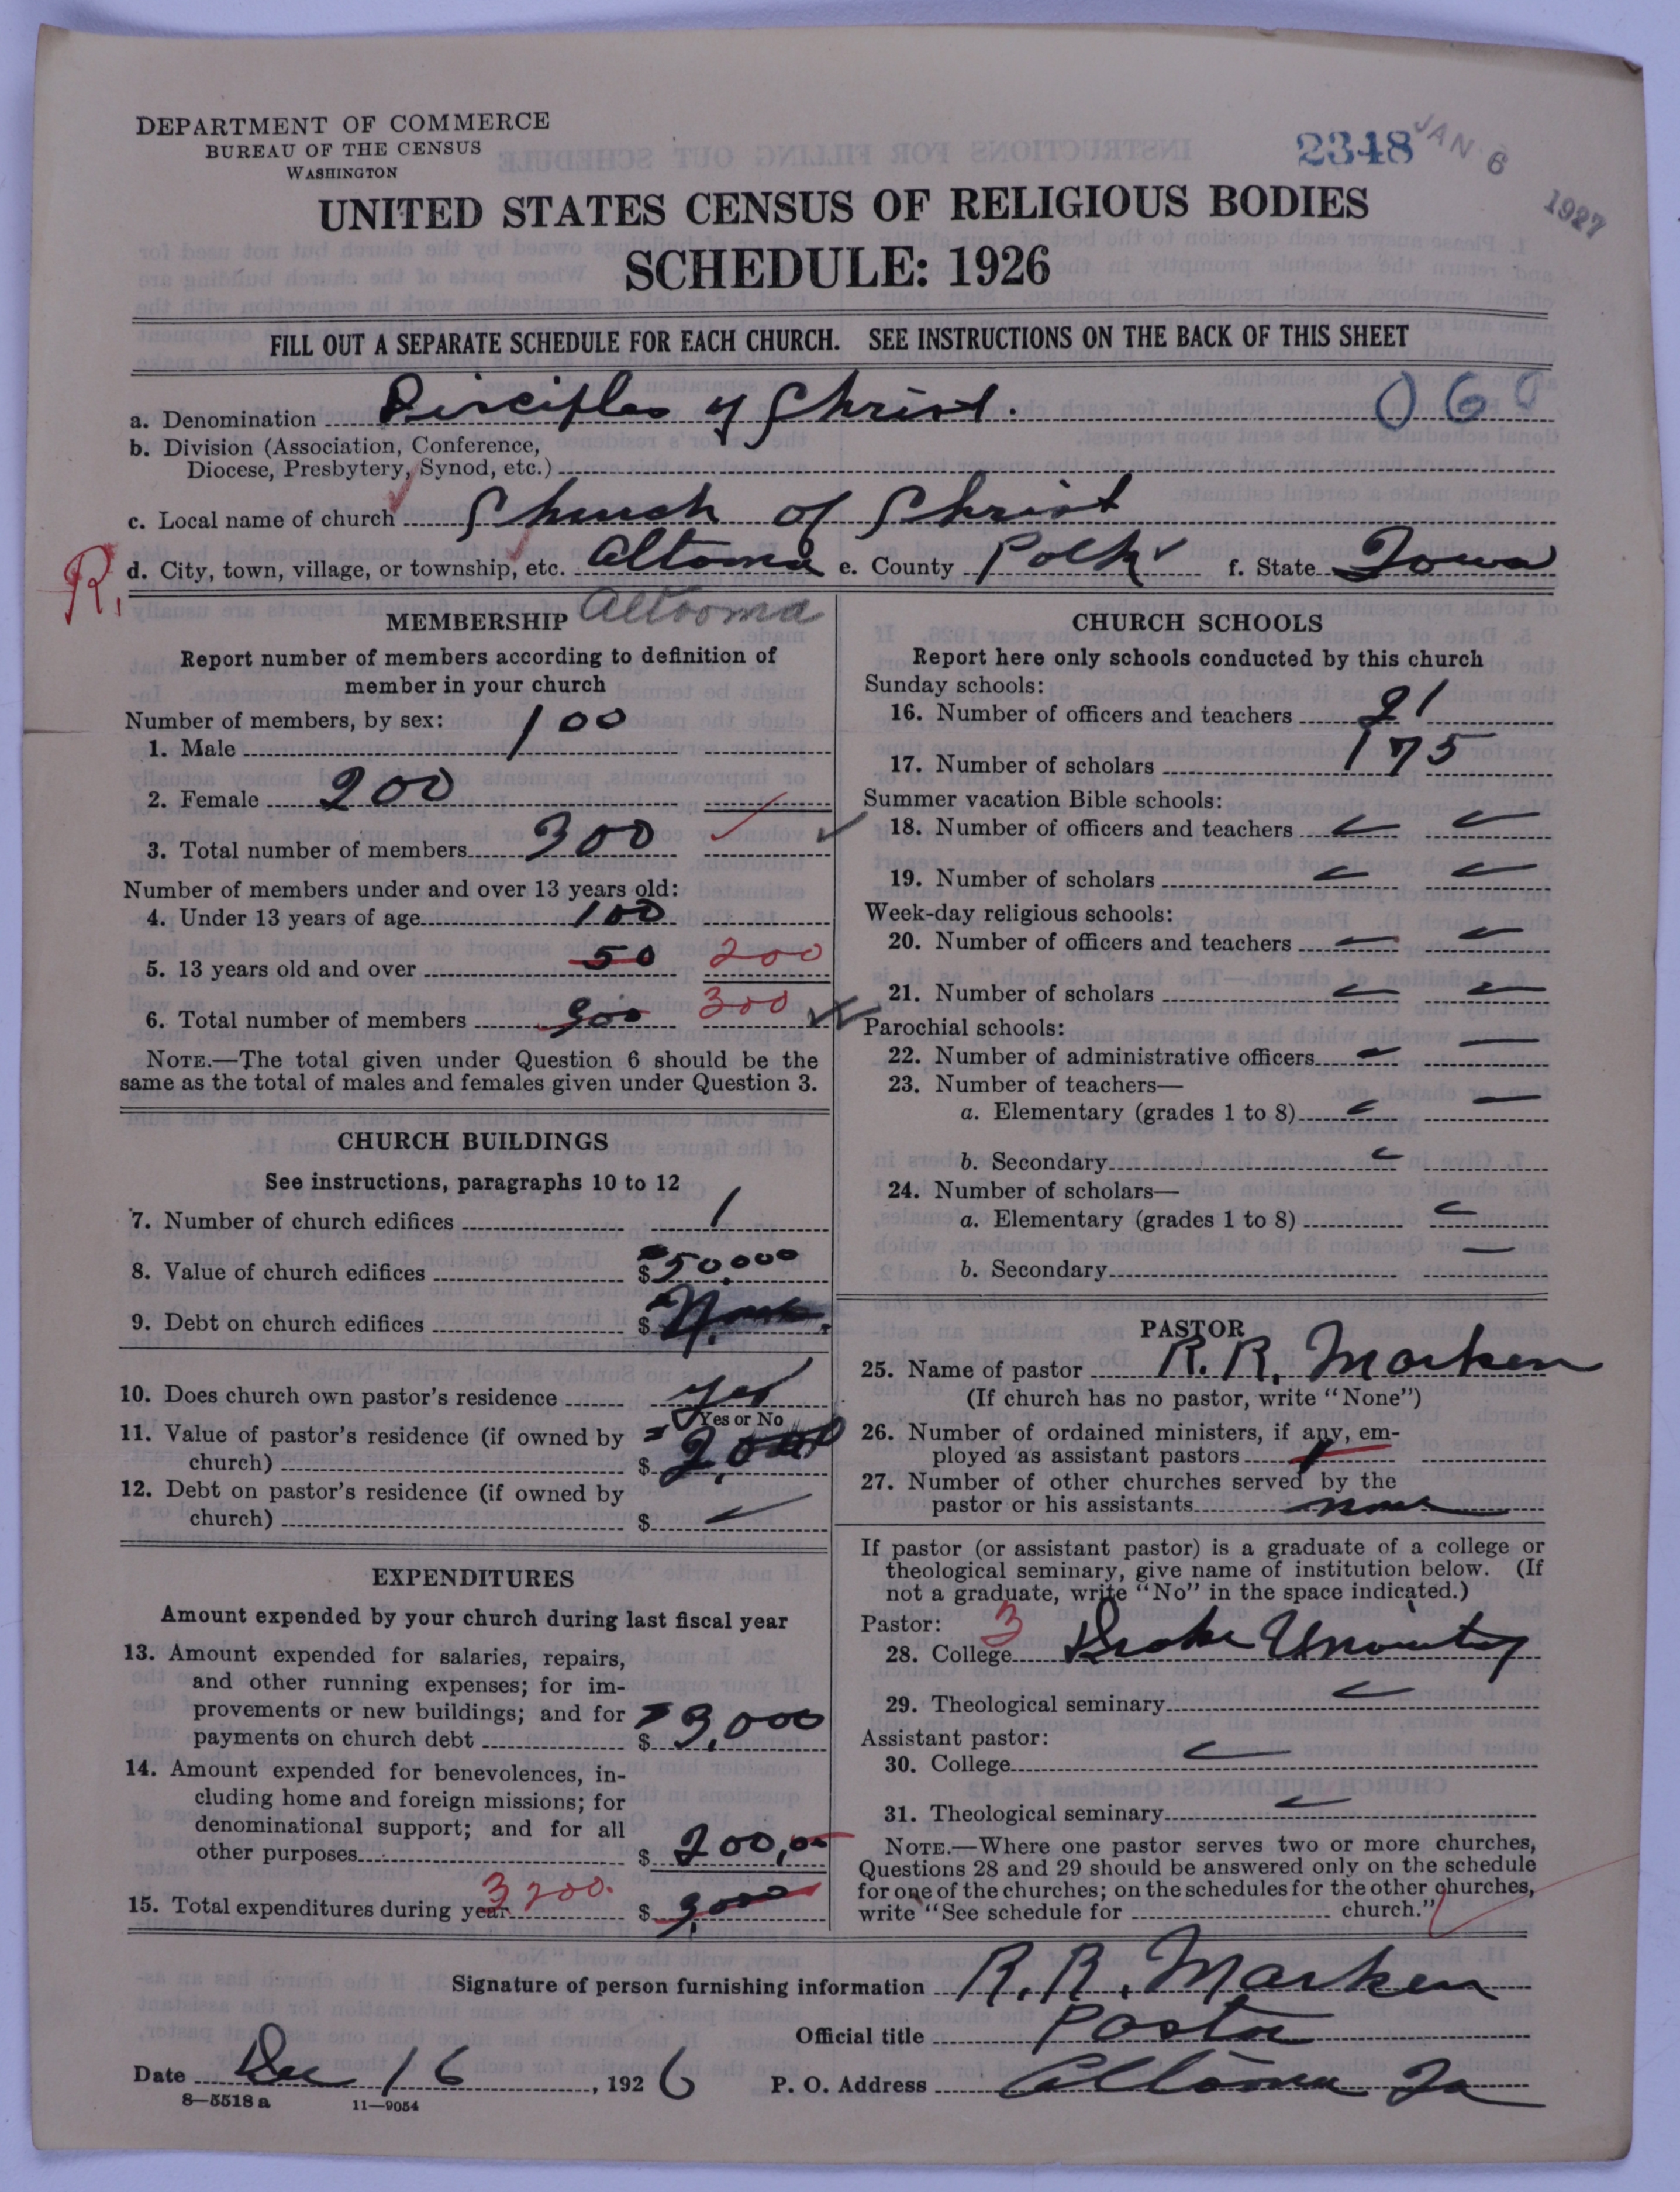 DEPARTMENT OF COMMERCE
BUREAU OF THE CENSUS
WASHINGTON
2348
JAN 6 1927
UNITED STATES CENSUS OF RELIGIOUS BODIES
SCHEDULE: 1926
FILL OUT A SEPARATE SCHEDULE FOR EACH CHURCH. SEE INSTRUCTIONS ON THE BACK OF THIS SHEET
a. Denomination Disciples of Christ. 060
b. Division (Association, Conference,
Diocese, Presbytery, Synod, etc.)
c. Local name of church Church of Christ
R. d. City, town, village, or township, etc. Altoona e. County Polk f. State Iowa
Altoona
MEMBERSHIP
Report number of members according to definition of
member in your church
Number of members, by sex:
1. Male 100
2. Female 200
3. Total number of members 300
Number of members under and over 13 years old:
4. Under 13 years of age 100
5. 13 years old and over 50 200
6. Total number of members 300 300
NOTE.—The total given under Question 6 should be the
same as the total of males and females given under Question 3.
CHURCH BUILDINGS
See instructions, paragraphs 10 to 12
7. Number of church edifices 1
8. Value of church edifices $ 50,000
9. Debt on church edifices $ None
10. Does church own pastor's residence yes
Yes or No
11. Value of pastor's residence (if owned by
church) $ 2,000
12. Debt on pastor's residence (if owned by
church) $
EXPENDITURES
Amount expended by your church during last fiscal year
13. Amount expended for salaries, repairs,
and other running expenses; for im-
provements or new buildings; and for
payments on church debt $ 3,000
14. Amount expended for benevolences, in-
cluding home and foreign missions; for
denominational support; and for all
other purposes $ 200,00
15. Total expenditures during year 3200. $ 3,000
CHURCH SCHOOLS
Report here only schools conducted by this church
Sunday schools:
16. Number of officers and teachers 21
17. Number of scholars 175
Summer vacation Bible schools:
18. Number of officers and teachers
19. Number of scholars
Week-day religious schools:
20. Number of officers and teachers
21. Number of scholars
Parochial schools:
22. Number of administrative officers
23. Number of teachers—
a. Elementary (grades 1 to 8)
b. Secondary
24. Number of scholars—
a. Elementary (grades 1 to 8)
b. Secondary
PASTOR
25. Name of pastor R. R. Marken
(If church has no pastor, write "None")
26. Number of ordained ministers, if any, em-
ployed as assistant pastors
27. Number of other churches served by the
pastor or his assistants none
If pastor (or assistant pastor) is a graduate of a college or
theological seminary, give name of institution below. (If
not a graduate, write "No" in the space indicated.)
Pastor: 3
28. College Drake University
29. Theological seminary
Assistant pastor:
30. College
31. Theological seminary
NOTE.—Where one pastor serves two or more churches,
Questions 28 and 29 should be answered only on the schedule
for one of the churches; on the schedules for the other churches,
write "See schedule for church."
Signature of person furnishing information R. R. Marken
Official title Pastor
Date Dec 16, 1926 P. O. Address Altoona Ia
8—5518 a 11—9054